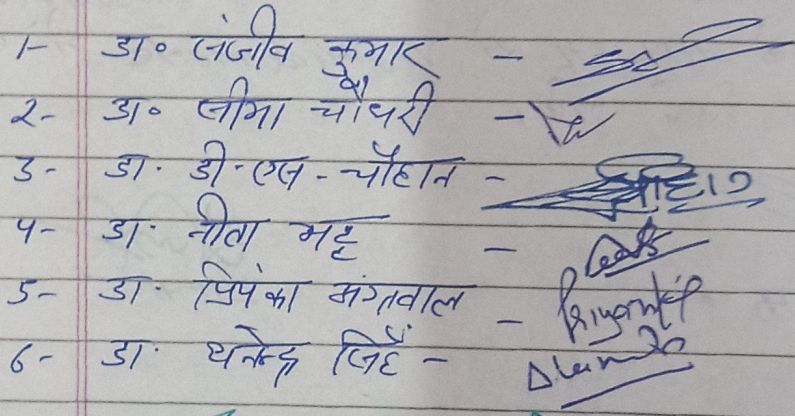 1- डा० संजीव कुमार -
2- डा० सीमा चौधरी -
3- डा. डी-एस-चौहान -
4- डा. नीता भट्ट -
5- डा. प्रियंका मंगवाल - Priyanka
6- डा. सिंह -